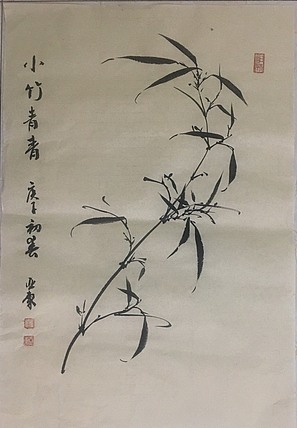 小竹青青
庚子初春